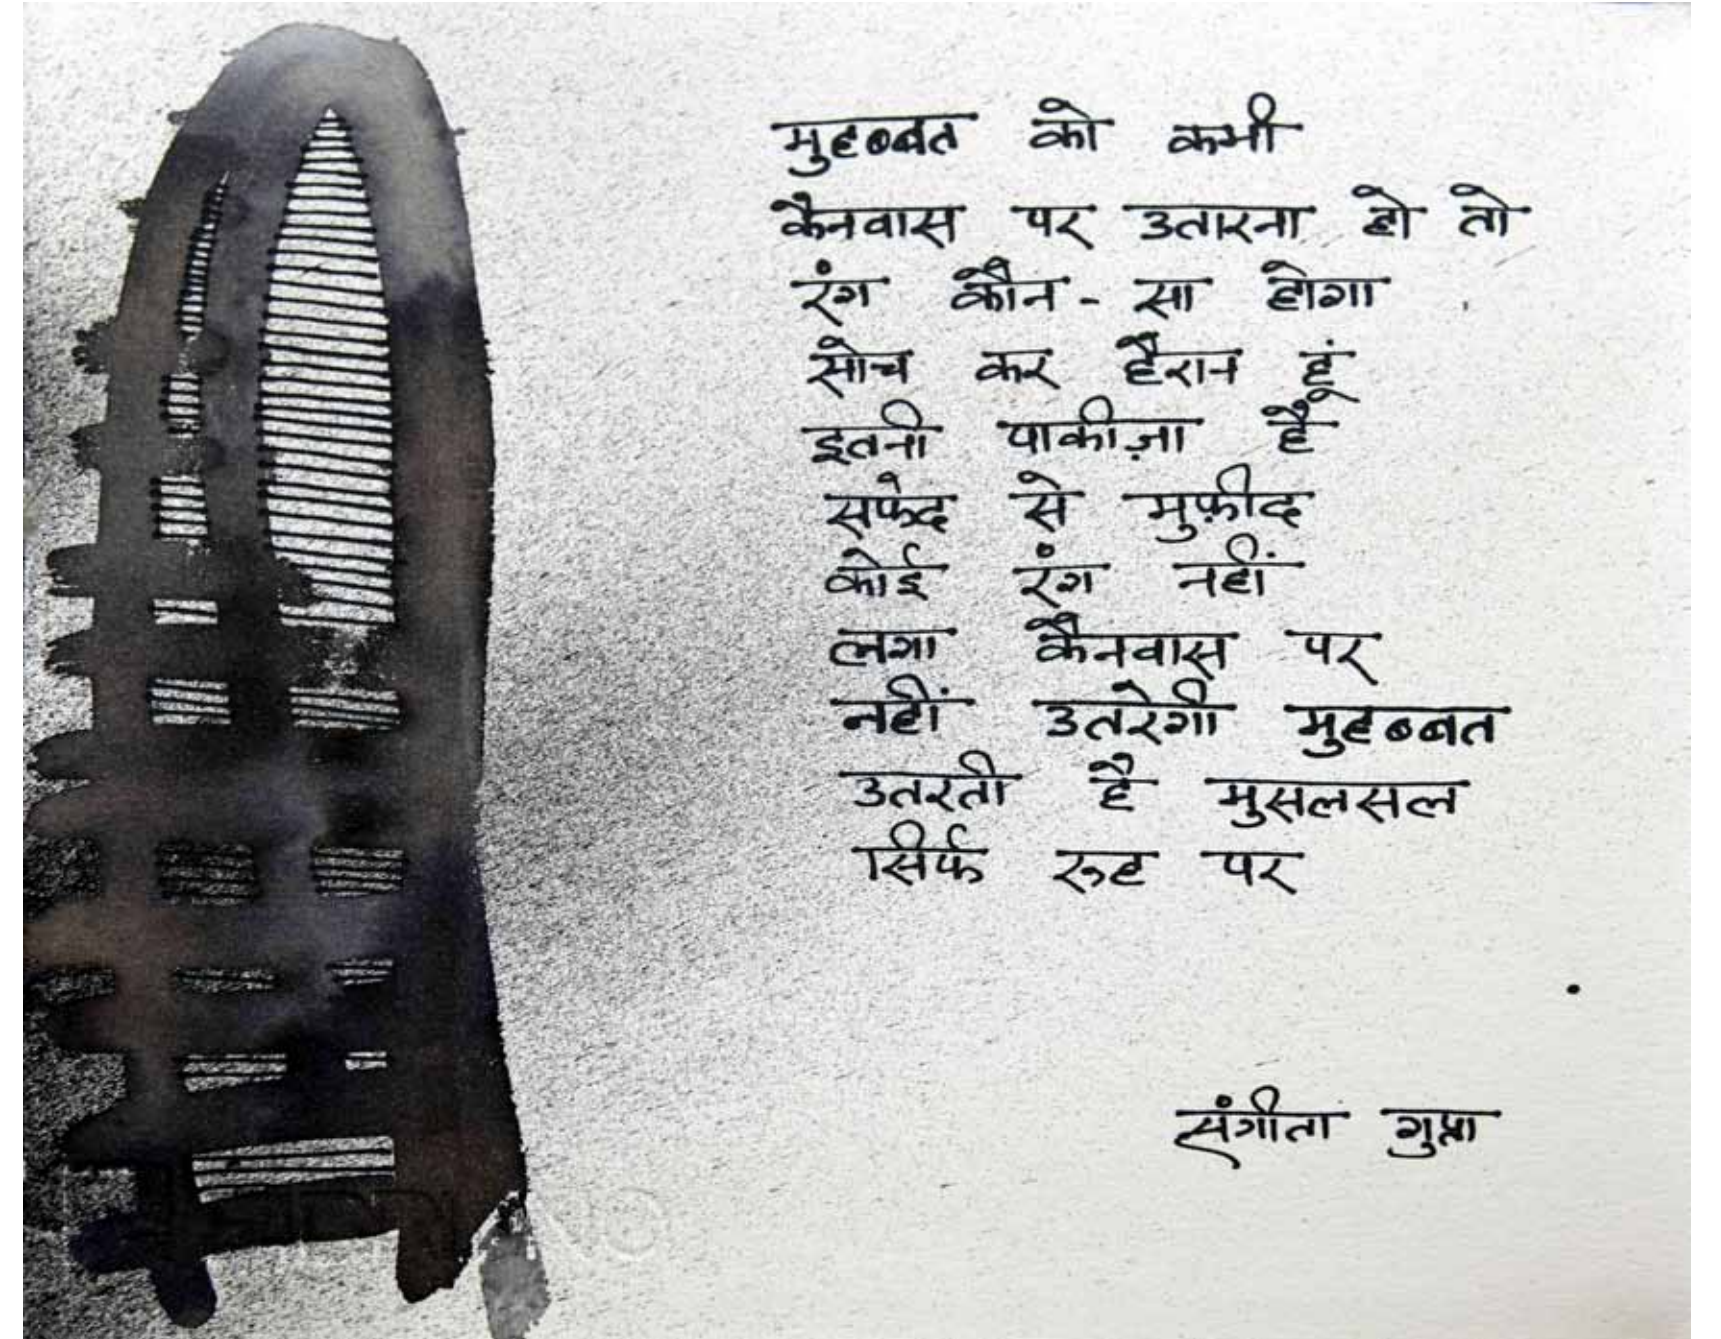 मुहब्बत को कभी
कैनवास पर उतारना हो तो
रंग कौन - सा होगा
सोच कर हैरान हूं
इतनी पाकीज़ा है
सफेद से मुफ़ीद
कोई रंग नहीं
लगा कैनवास पर
नहीं उतरेगी मुहब्बत
उतरती है मुसलसल
सिर्फ रूह पर
संगीता गुप्ता